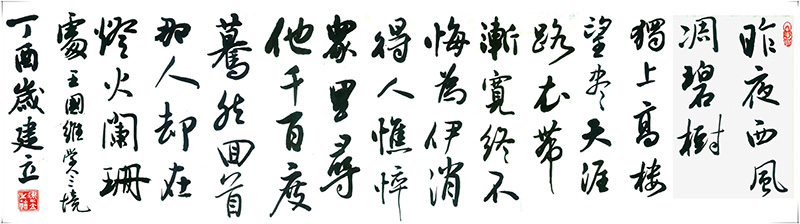 昨夜西風
凋碧樹
獨上高樓
望尽天涯
路衣帶
漸寬終不
悔為伊消
得人憔悴
衆里尋
他千百度
驀然回首
那人却在
燈火闌珊
處 王國維學之境
丁酉歲建立